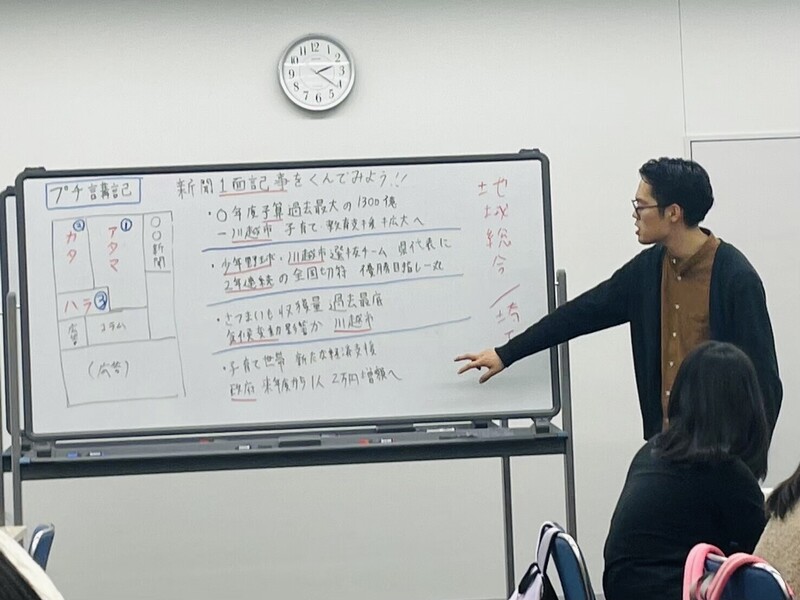 プチ講記
新聞1面記事をくんでみよう!!
・〇年度予算 過去最大の1300億
ー川越市 子育て・教育支援 拡大へ
・少年野球・川越市選抜チーム 県代表に
2年連続の全国切符 優勝目指し一丸
・さつまいも収穫量 過去最低
気候変動影響か 川越市
・子育て世帯 新たな経済支援
政府 来年度から1人2万円増額へ
地域総合/埼
② カタ
① アタマ
〇〇新聞
ハラ ③
広告
コラム
(広告)
12
1
2
3
4
5
6
7
8
9
10
11